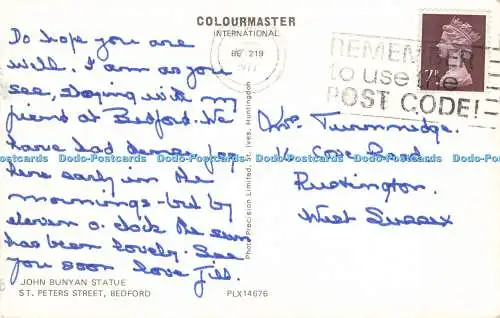 COLOURMASTER
INTERNATIONAL
Do hope you are
well. I am as you
see, staying with my
friend at Bedford. We
have had dense fog
here early in the
mornings - but by
eleven o. clock the sun
has been lovely. See
you soon love Jill.
JOHN BUNYAN STATUE
ST. PETERS STREET, BEDFORD
PLX14676
Photo Precision Limited, St. Ives, Huntingdon
REMEMBER
to use the
POST CODE!
7P
Mrs Turmnidge.
16 Cove Road
Rustington.
West Sussex
Dodo-Postcards Dodo-Postcards Dodo-Postcards Dodo-Postcards Dodo-Postcards